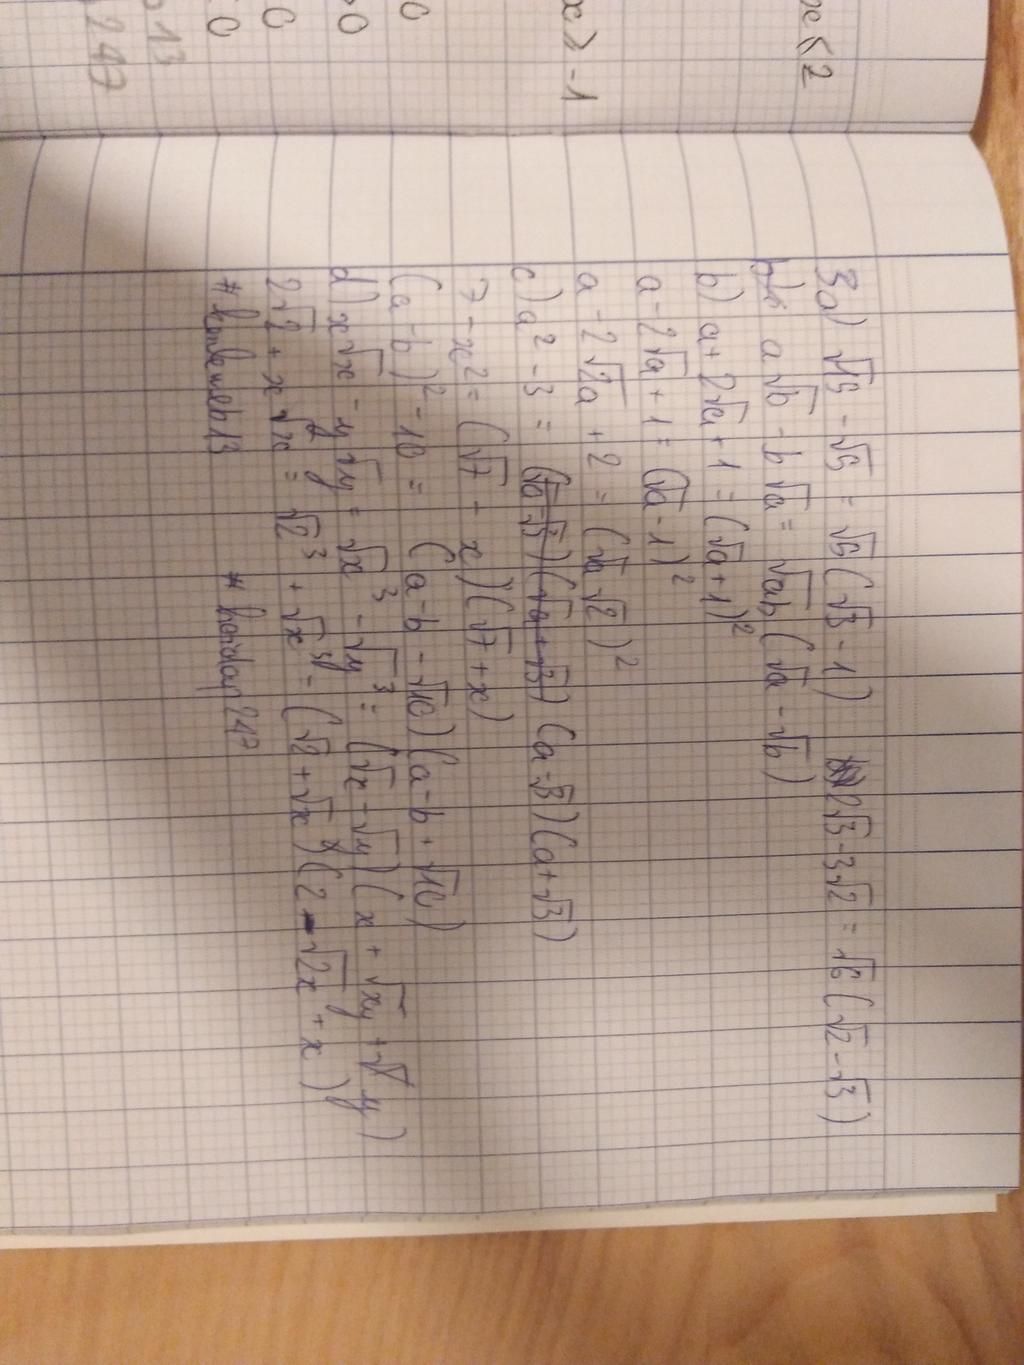 x < 2
x ⩾ -1
0
>0
0
≤ 0
13
247
3a) √15 - √5 = √5(√3 - 1) 2√3-3√2 = √6(√2-√3)
a√b - b√a = √ab(√a - √b)
b) a + 2√a + 1 = (√a+1)²
a - 2√a + 1 = (√a - 1)²
a - 2√2a + 2 = (√a √2)²
c) a² - 3 = (√a-√3)(√a+√3) (a-√3)(a+√3)
7 - x² = (√7 - x)(√7 + x)
(a-b)² - 10 = (a-b-√10)(a-b+√10)
d) x√x - y√y = √x³ - √y³ = (√x - √y)(x + √xy + y)
2√2 + x√x = √2³ + √x³ = (√2 + √x)(2 - √2x + x)